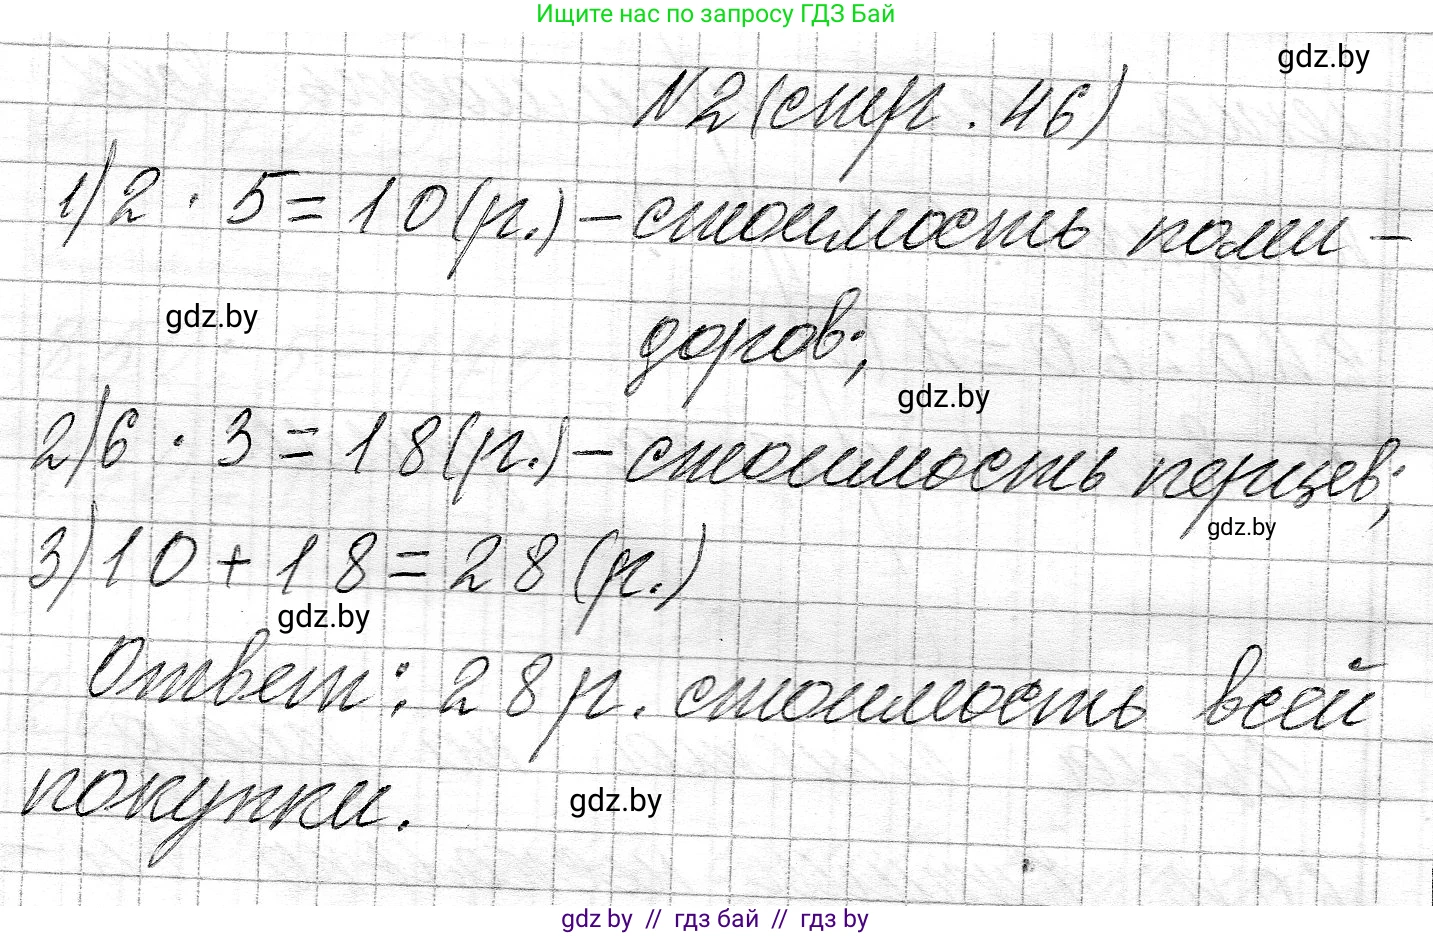 Ищите нас по запросу ГДЗ Бай
gdz.by
№2 (стр. 46)
1) 2 · 5 = 10 (р.) – стоимость поми-
gdz.by
доров;
gdz.by
2) 6 · 3 = 18 (р.) – стоимость перцев;
gdz.by
3) 10 + 18 = 28 (р.)
gdz.by
Ответ: 28 р. стоимость всей
покупки.
gdz.by
gdz.by // гдз бай // гдз by